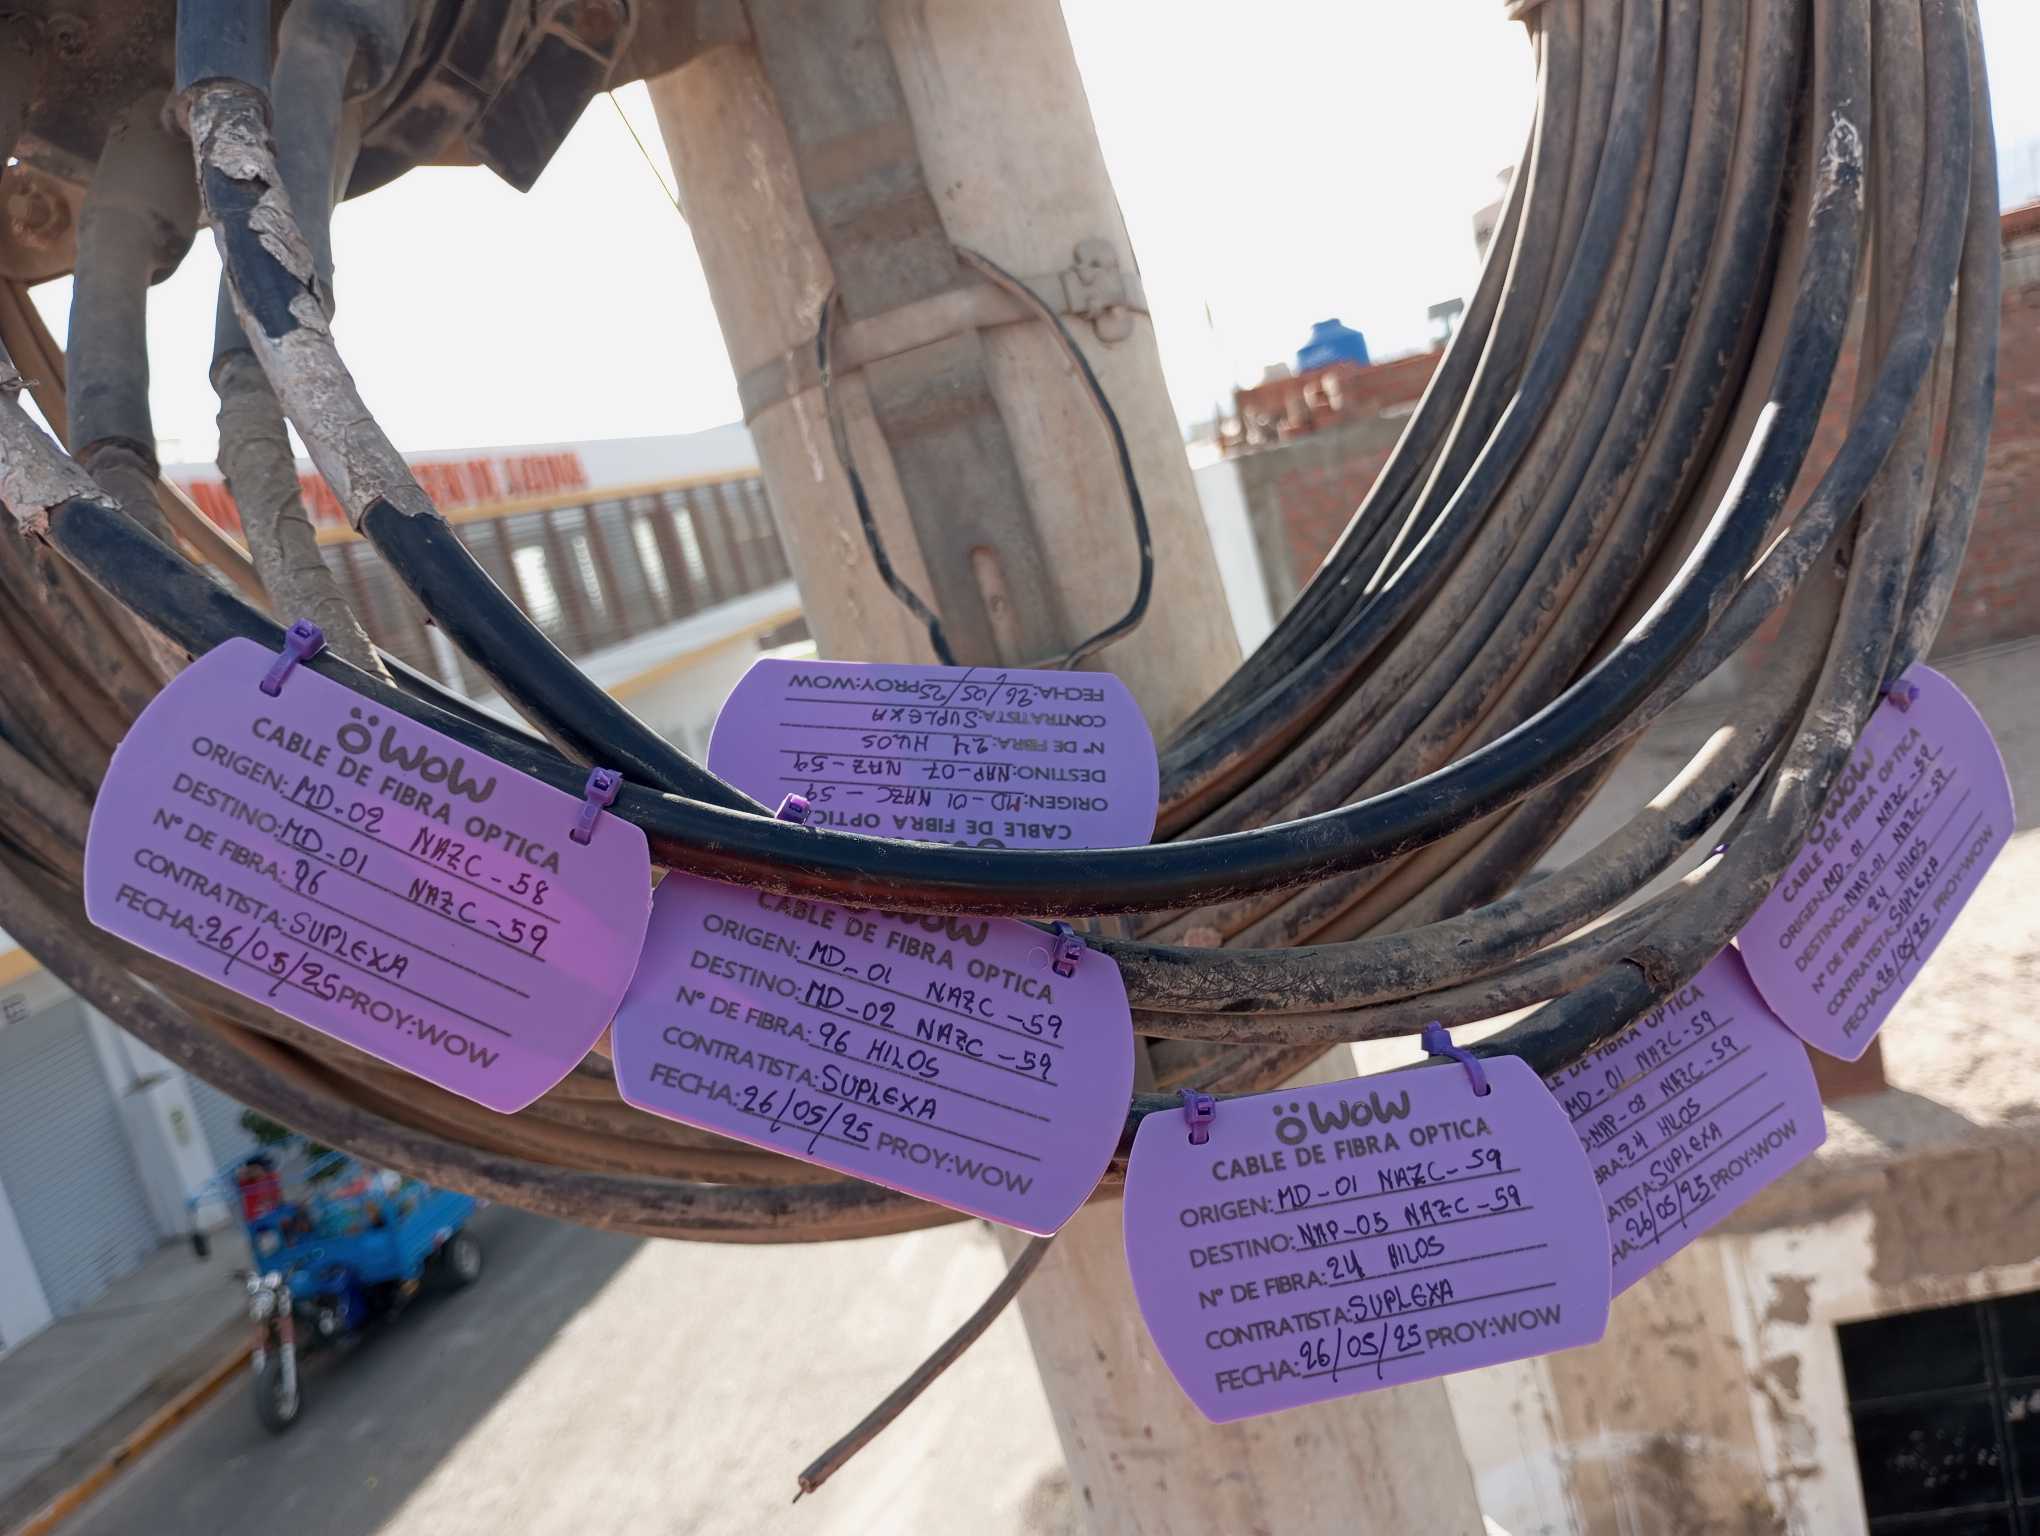 WOW
CABLE DE FIBRA OPTICA
ORIGEN: MD-02 NAZC-58
DESTINO: MD-01 NAZC-59
N° DE FIBRA: 96
CONTRATISTA: SUPLEXA
FECHA: 26/05/25 PROY:WOW
CABLE DE FIBRA OPTIC
ORIGEN: MD-01 NAZC-59
DESTINO: NAP-07 NAZ-59
N° DE FIBRA: 24 HILOS
CONTRATISTA: SUPLEXA
FECHA: 26/05/25 PROY:WOW
WOW
CABLE DE FIBRA OPTICA
ORIGEN: MD-01 NAZC-59
DESTINO: MD-02 NAZC-59
N° DE FIBRA: 96 HILOS
CONTRATISTA: SUPLEXA
FECHA: 26/05/25 PROY:WOW
WOW
CABLE DE FIBRA OPTICA
ORIGEN: MD-01 NAZC-59
DESTINO: NAP-05 NAZC-59
N° DE FIBRA: 24 HILOS
CONTRATISTA: SUPLEXA
FECHA: 26/05/25 PROY:WOW
LE DE FIBRA OPTICA
MD-01 NAZC-59
O: NAP-03 NAZC-59
BRA: 24 HILOS
ATISTA: SUPLEXA
HA: 26/05/25 PROY:WOW
WOW
CABLE DE FIBRA OPTICA
ORIGEN: MD-01 NAZC-59
DESTINO: NAP-01 NAZC-59
N° DE FIBRA: 24 HILOS
CONTRATISTA: SUPLEXA
FECHA: 26/05/25 PROY:WOW